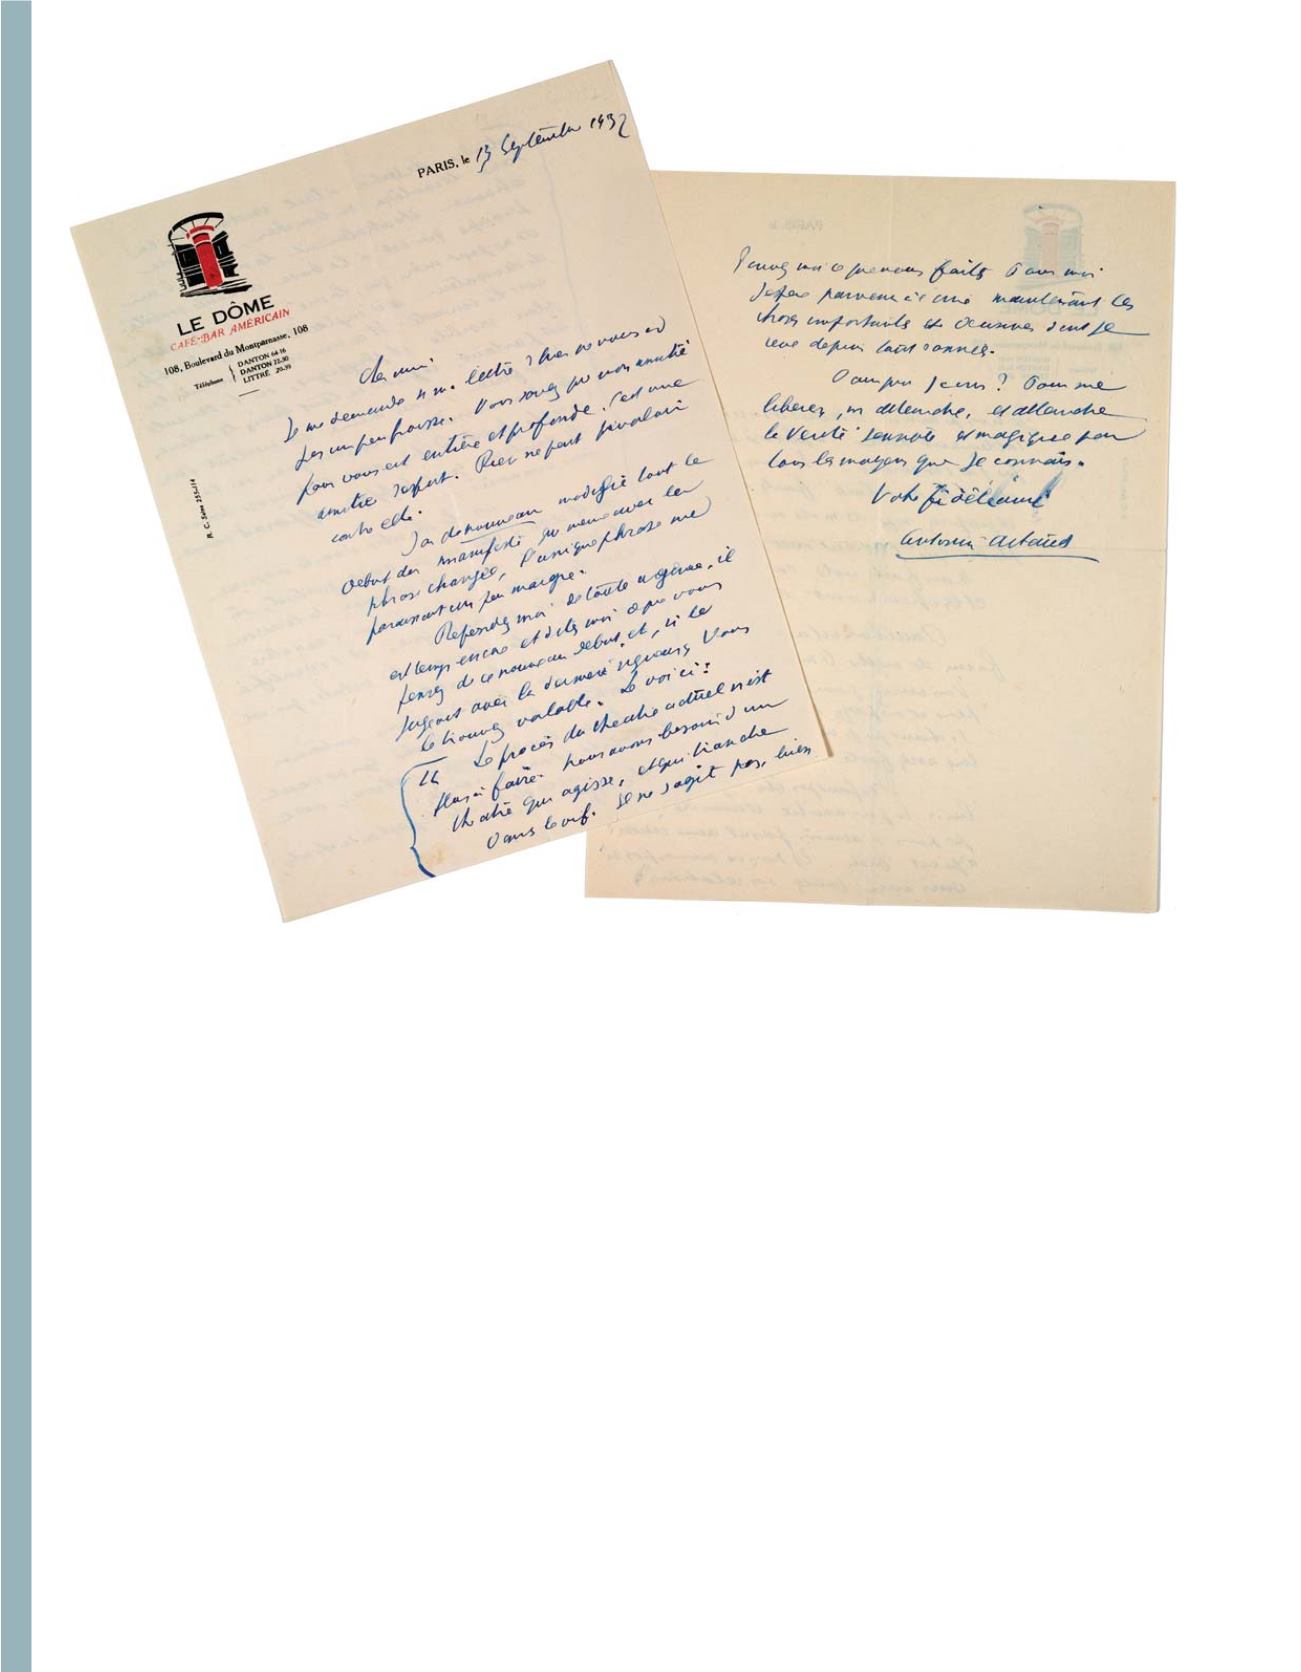 PARIS, le 13 Septembre 1932
LE DÔME
CAFÉ-BAR AMÉRICAIN
108, Boulevard du Montparnasse, 108
Téléphone
DANTON 64-16
DANTON 72-50
LITTRÉ 20-39
R. C. Seine 255-114
Cher ami
Je me demande si ma lettre d'hier ne vous a
pas un peu froissé. Vous savez que mon amitié
pour vous est entière et profonde. C'est une
amitié d'esprit. Rien ne peut prévaloir
contre elle.
J'ai de nouveau modifié tout le
début du manifeste que même avec la
phrase changée, l'unique phrase me
paraissait un peu maigre.
Répondez moi de toute urgence, il
est temps encore et dites moi ce que vous
pensez de ce nouveau début et, si le
jugeant avec la dernière rigueur, vous
le trouvez valable. Le voici :
" Le procès du théâtre actuel n'est
plus à faire. Nous avons besoin d'un
théâtre qui agisse, et qui tranche
dans le vif. Il ne s'agit pas, bien
faits Pour moi
maintenant les
choses importantes et dont je
rêve depuis tant d'années.
Pourquoi écrire ? Pour me
libérer, m'atteindre, et atteindre
la Vérité et magique par
tous les moyens que je connais.
Votre fidèle ami
Antonin Artaud